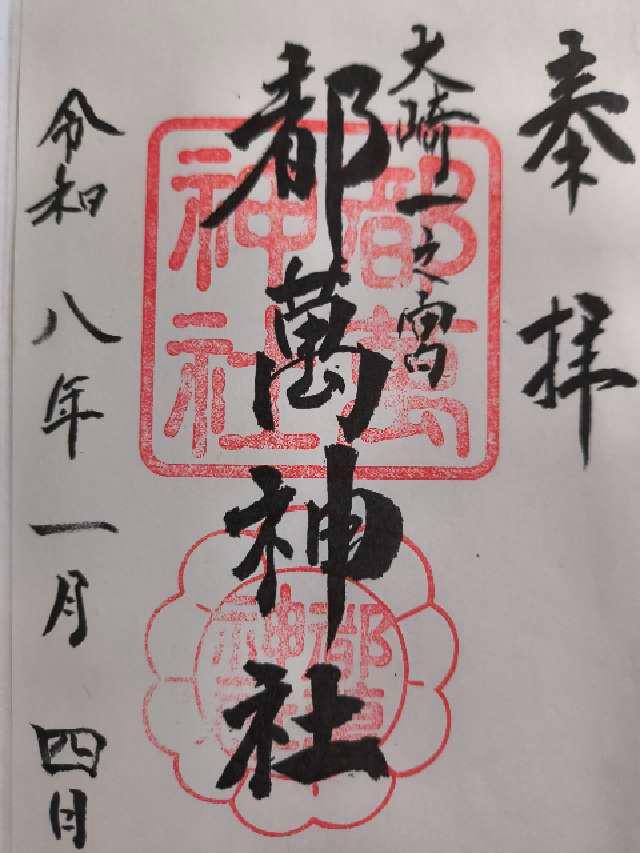 奉拝
大崎一之宮
都萬神社
令和八年一月四日
都萬
神社